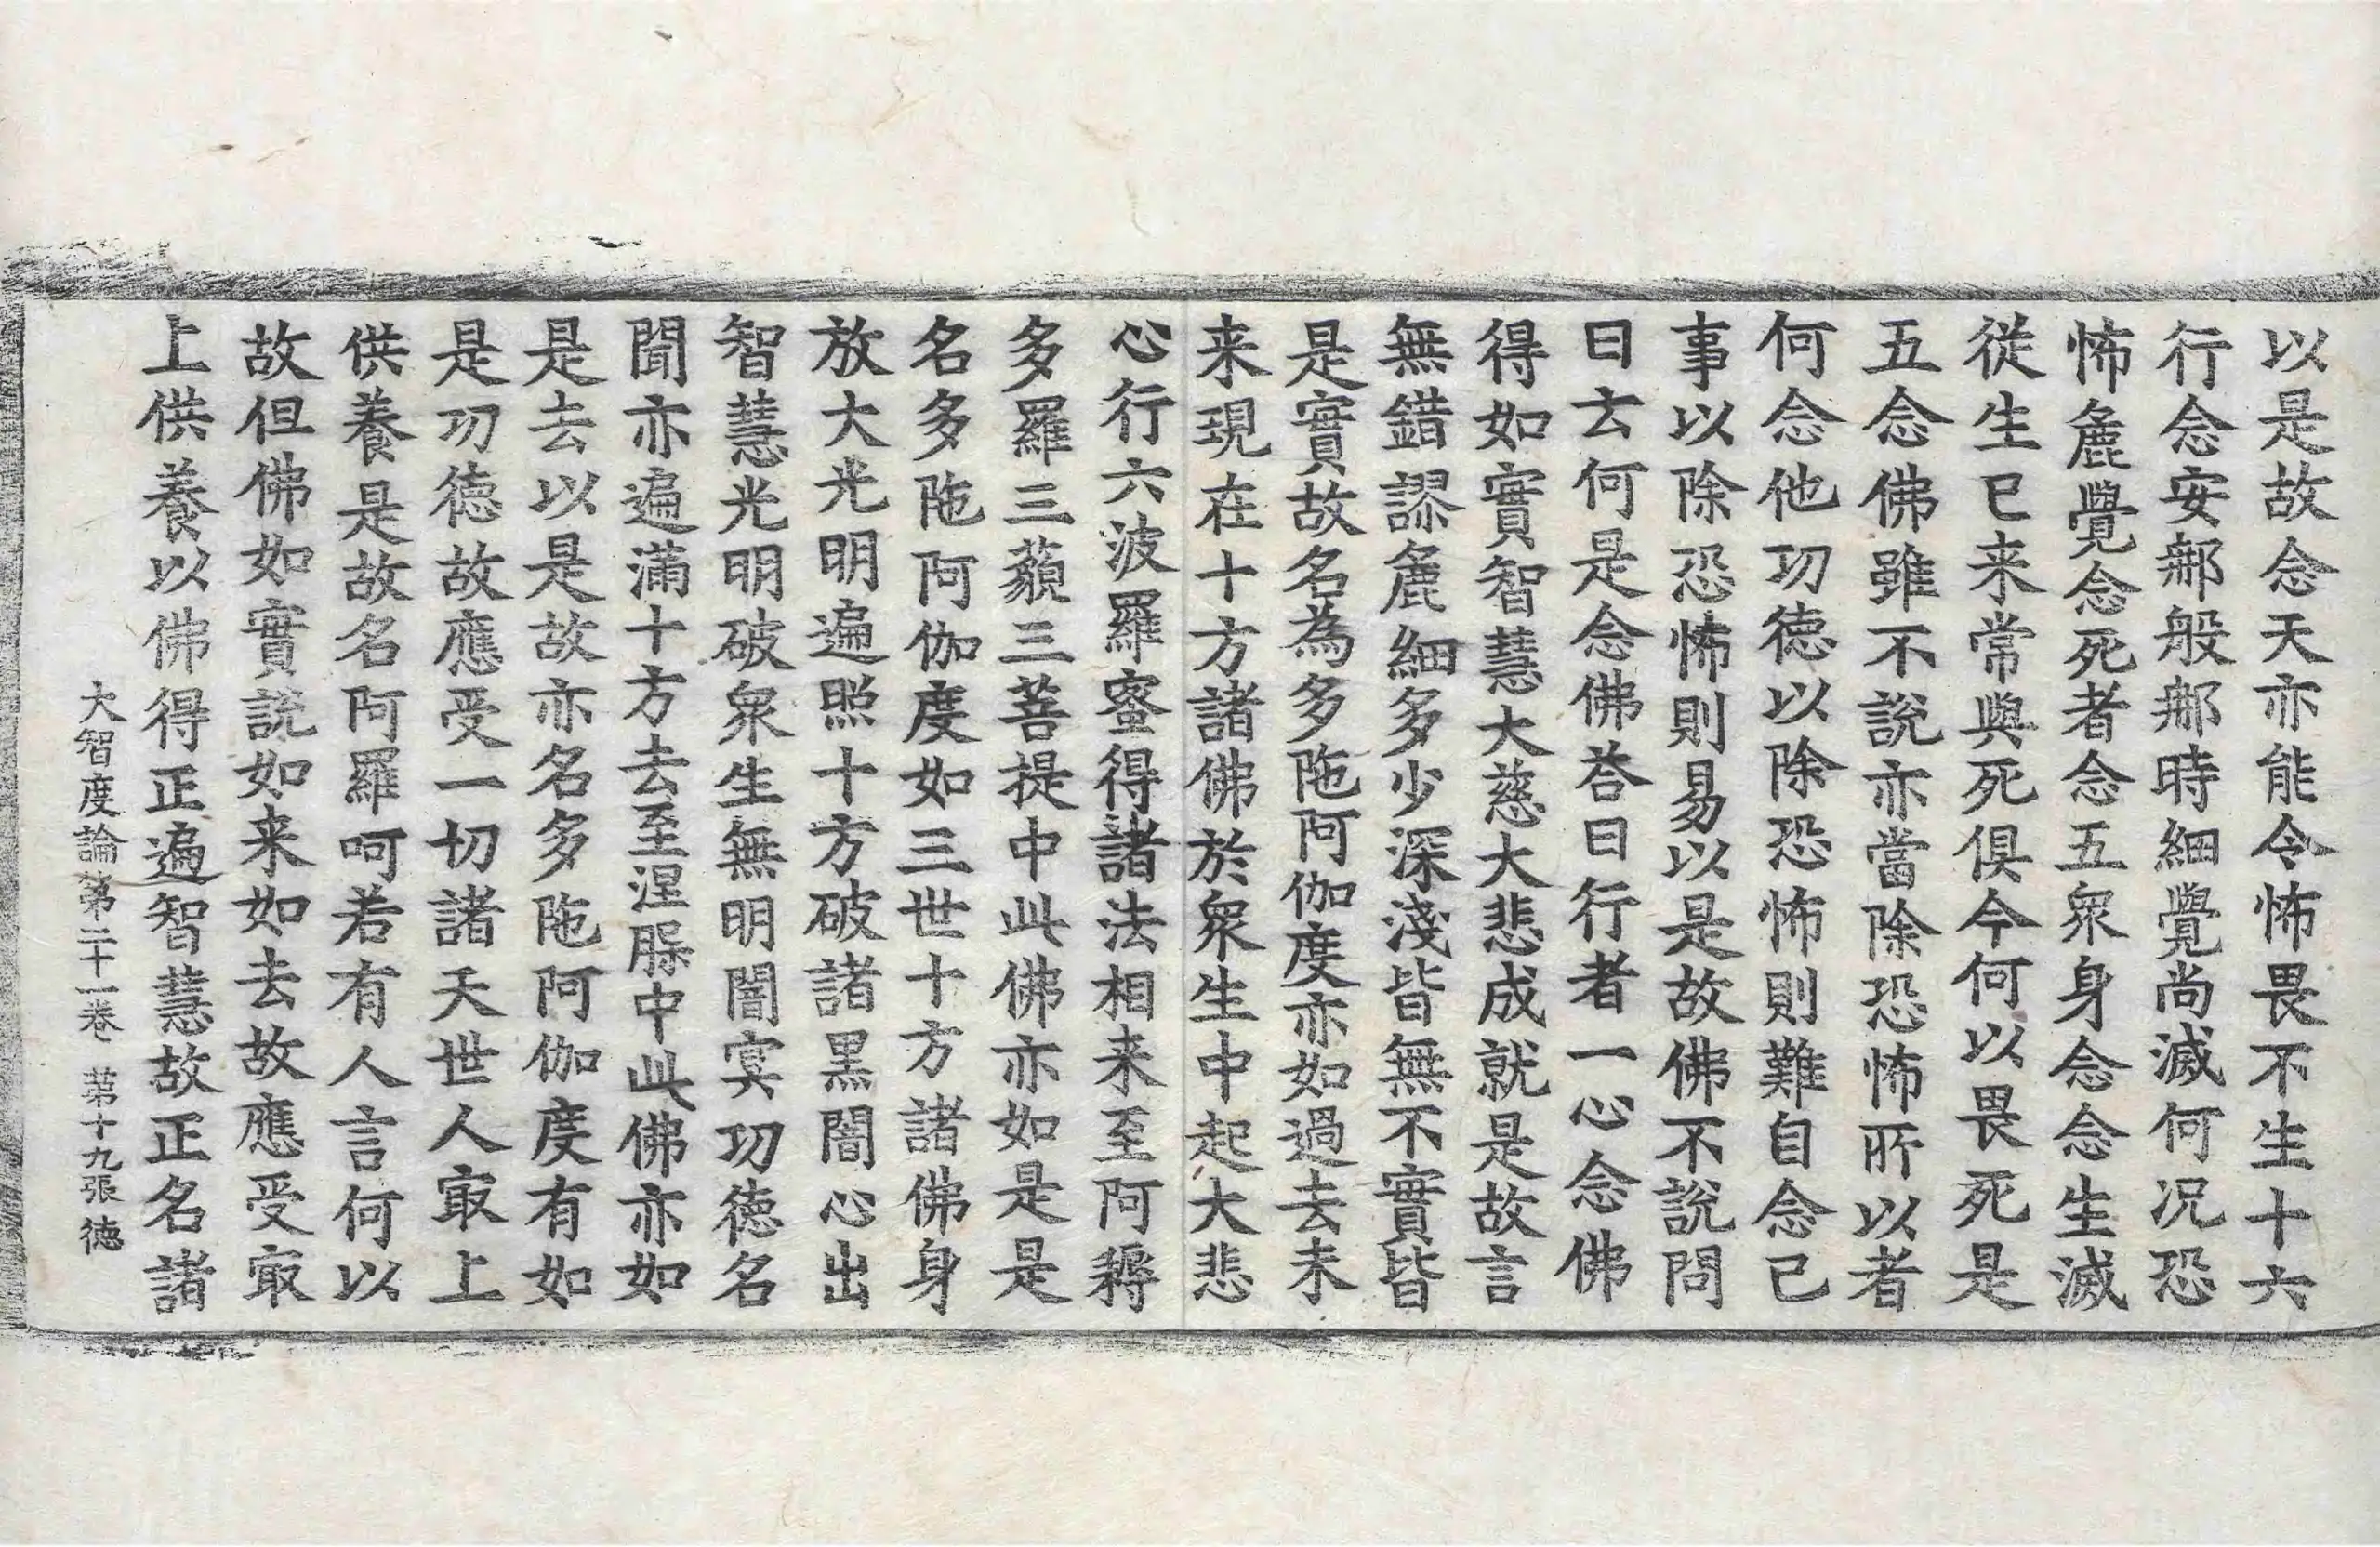 以是故念天亦能令怖畏不生十六
行念安郍般郍時細覺尚滅何况恐
怖麁覺念死者念五衆身念念生滅
從生已来常與死俱今何以畏死是
五念佛雖不說亦當除恐怖所以者
何念他功徳以除恐怖則難自念已
事以除恐怖則易以是故佛不說問
曰云何是念佛荅曰行者一心念佛
得如實智慧大慈大悲成就是故言
無錯謬麁細多少深淺皆無不實皆
是實故名為多陁阿伽度亦如過去未
来現在十方諸佛於衆生中起大悲
心行六波羅蜜得諸法相来至阿耨
多羅三藐三菩提中此佛亦如是是
名多陁阿伽度如三世十方諸佛身
放大光明遍照十方破諸黒闇心出
智慧光明破衆生無明闇冥功徳名
聞亦遍滿十方去至涅槃中此佛亦如
是去以是故亦名多陁阿伽度有如
是功徳故應受一切諸天世人㝡上
供養是故名阿羅呵若有人言何以
故但佛如實說如来如去故應受㝡
上供養以佛得正遍智慧故正名諸
大智度論第二十一卷 第十九張 徳